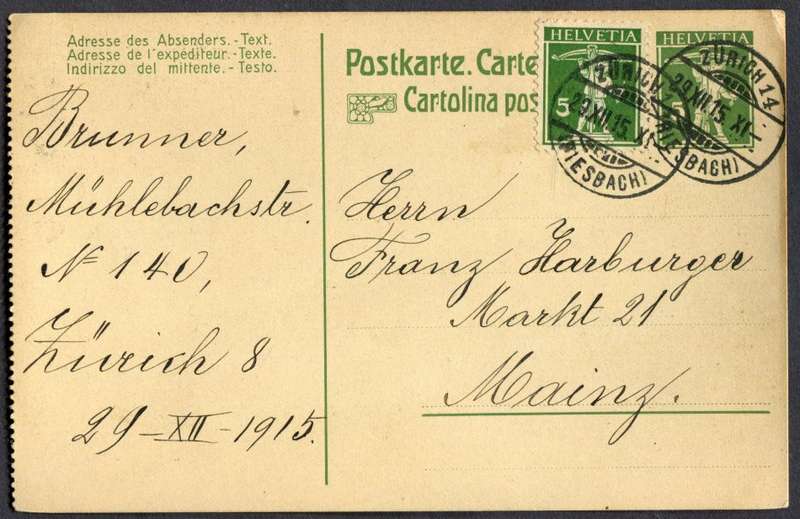 Adresse des Absenders.-Text.
Adresse de l'expéditeur.-Texte.
Indirizzo del mittente.-Testo.
Postkarte. Carte
Cartolina pos
HELVETIA
5
HELVETIA
5
ZÜRICH
29.XII.15. XI-
(WIESBACH)
ZÜRICH 14
29.XII.15. XI-
WIESBACH)
Brunner,
Mühlebachstr.
No 140,
Zürich 8
29-XII-1915.
Herrn
Franz Harburger
Markt 21
Mainz.